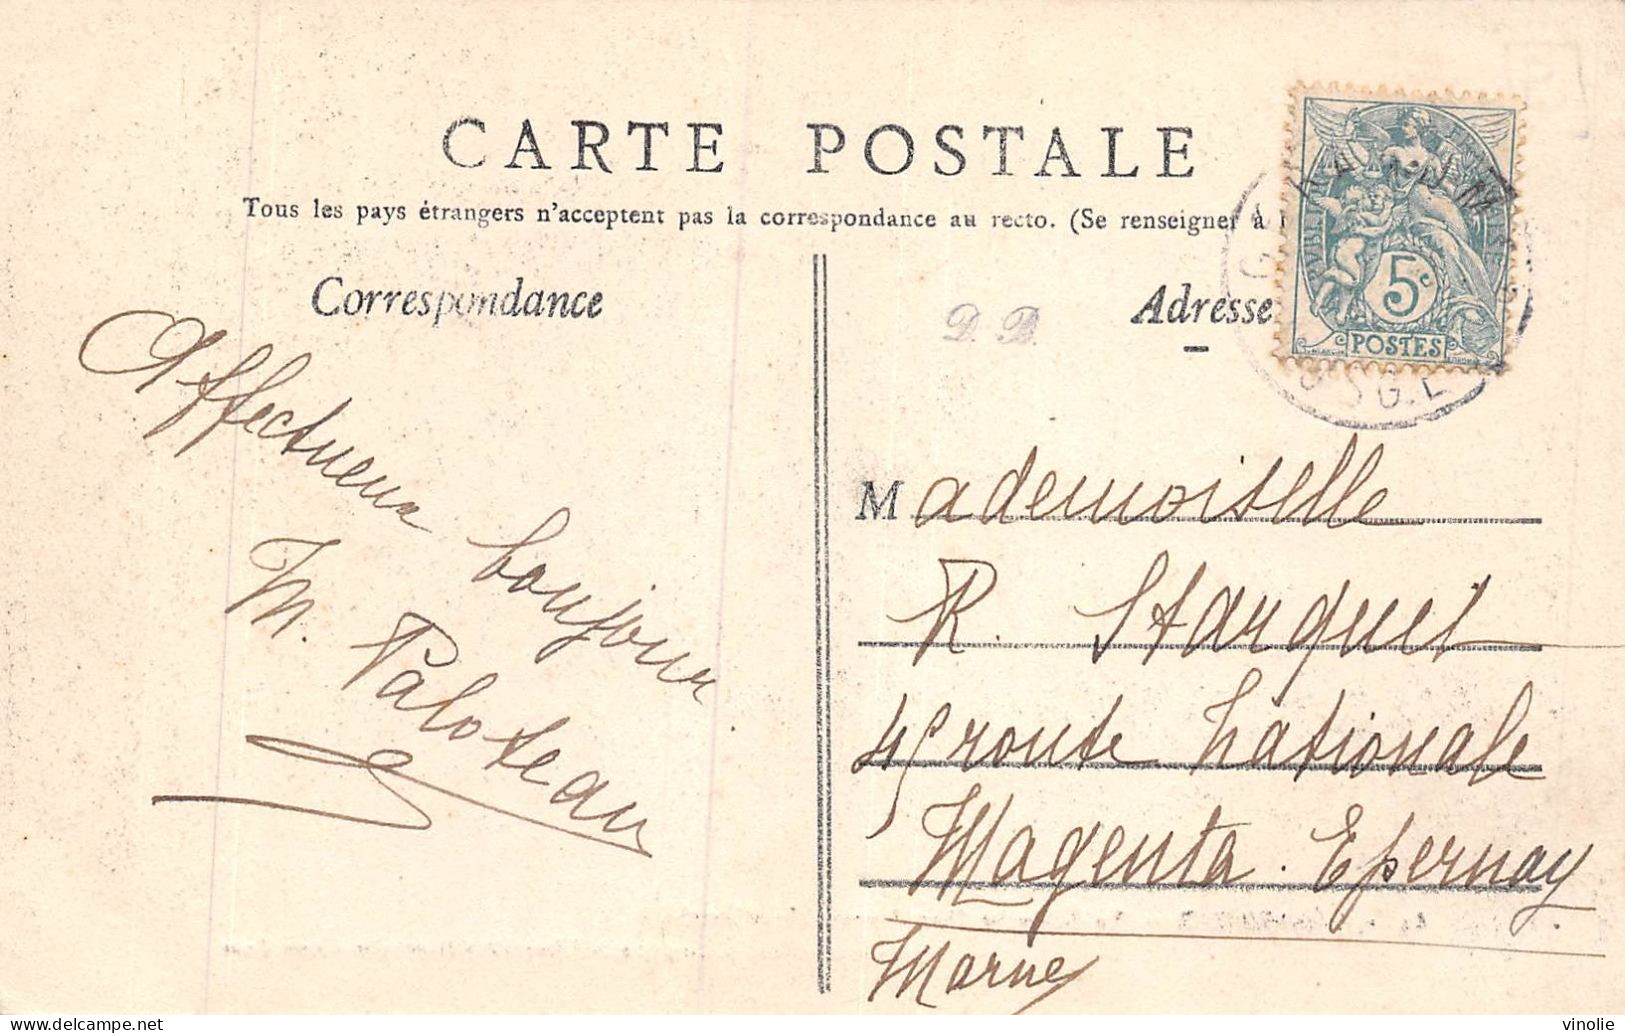 CARTE POSTALE
Tous les pays étrangers n'acceptent pas la correspondance au recto. (Se renseigner à
Correspondance
Adresse
D. B.
5c
POSTES
OSGE
Affectueux bonjour
M. Paloteau
Mademoiselle
R. Starquet
45 route Nationale
Magenta. Epernay
Marne
delcampe.net
vinolie